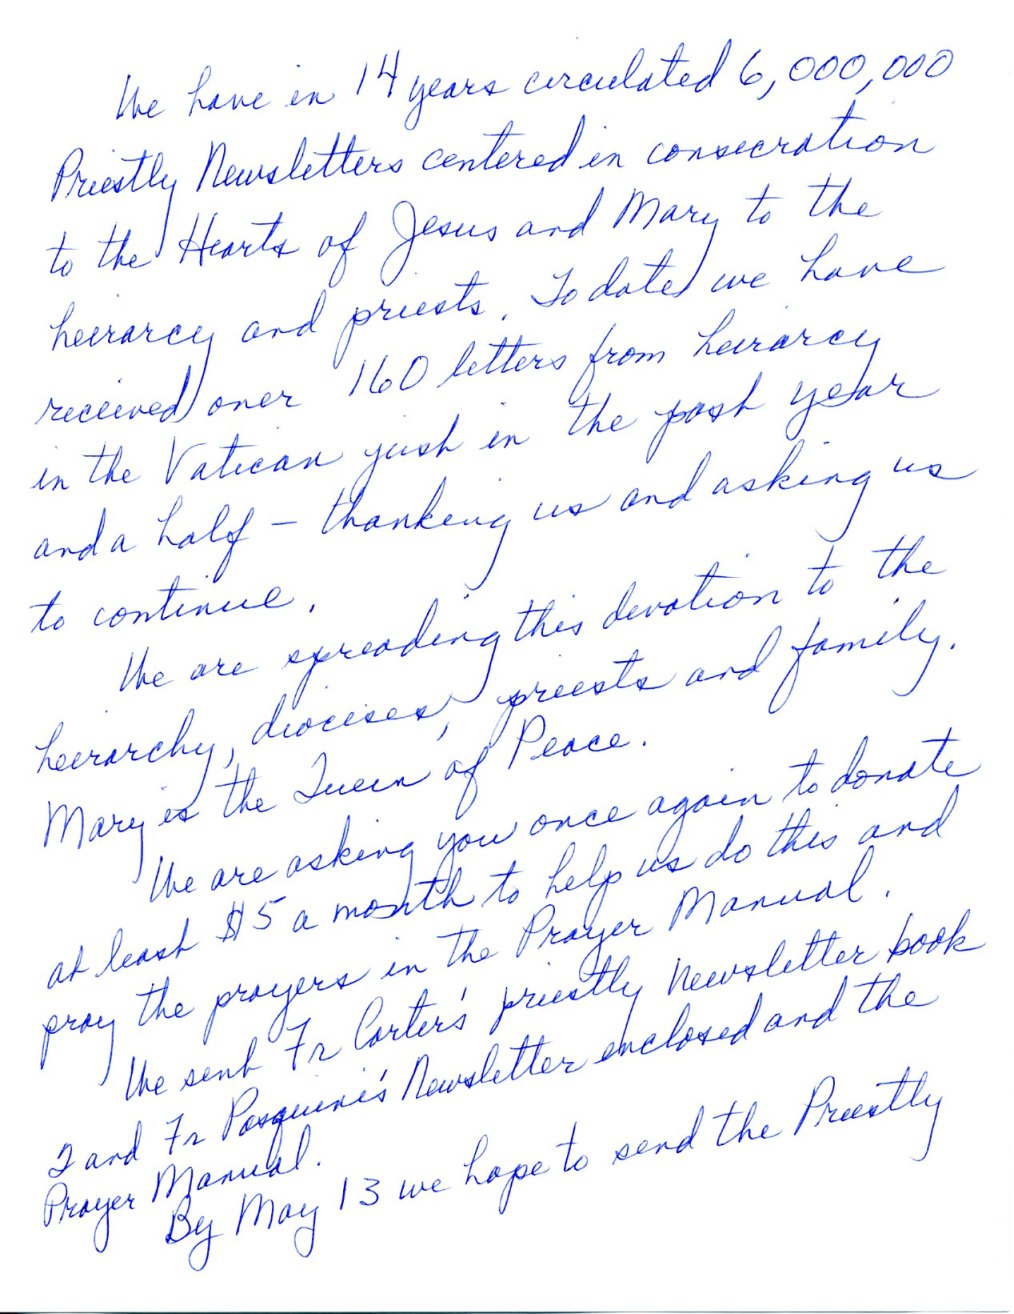 We have in 14 years circulated 6,000,000
Priestly Newsletters centered in consecration
to the Hearts of Jesus and Mary to the
heirarcy and priests. To date we have
received over 160 letters from heirarcy
in the Vatican just in the past year
and a half – thanking us and asking us
to continue.
We are spreading this devotion to the
heirarchy, dioceses, priests and family.
Mary is the Queen of Peace.
We are asking you once again to donate
at least $5 a month to help us do this and
pray the prayers in the Prayer Manual.
We sent Fr Carter's priestly Newsletter book
2 and Fr Pasquini's Newsletter enclosed and the
Prayer Manual.
By May 13 we hope to send the Priestly